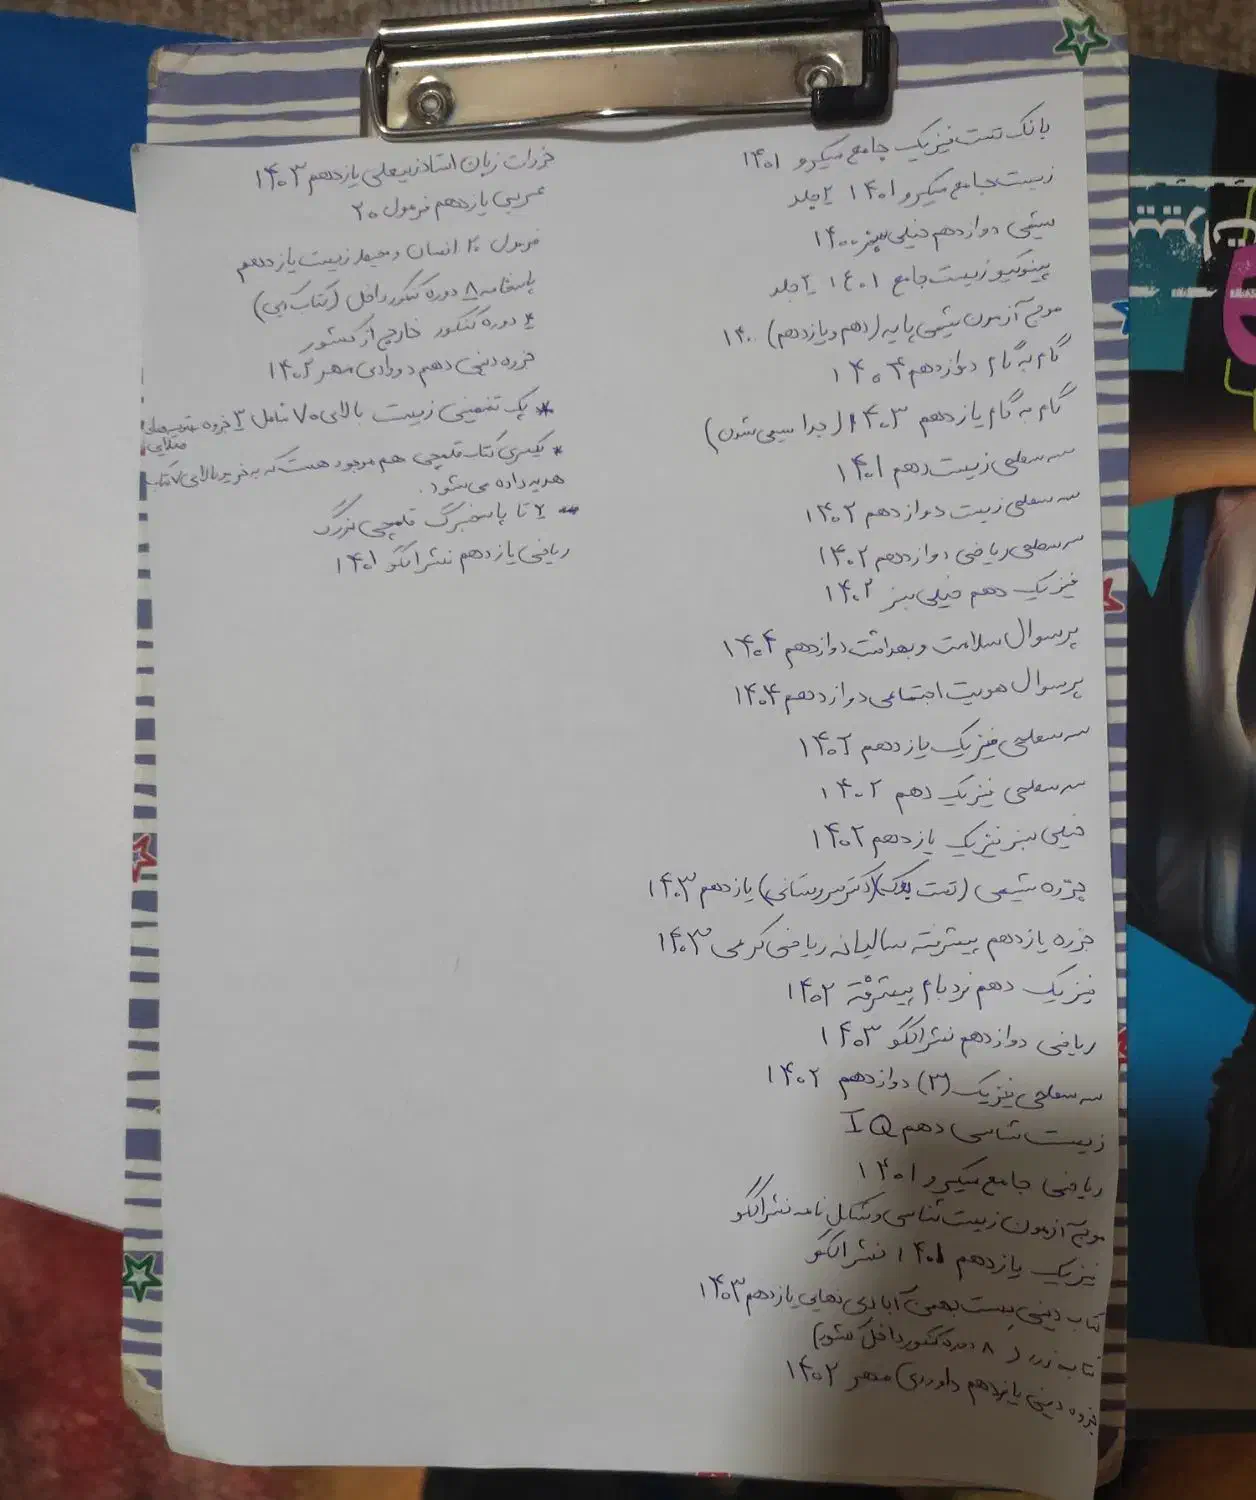 بانک تست فیزیک جامع میکرو ۱۴۰۱
زیست جامع میکرو ۱۴۰۱ ۲ جلد
شیمی دوازدهم خیلی سبز ۱۴۰۰
پینوکیو زیست جامع ۱۴۰۱ ۲ جلد
موج آزمون شیمی پایه (دهم و یازدهم) ۱۴۰۰
گام به گام دوازدهم ۱۴۰۴
گام به گام یازدهم ۱۴۰۳ (جدا سیمی شدن)
سه سطحی زیست دهم ۱۴۰۱
سه سطحی زیست دوازدهم ۱۴۰۲
سه سطحی ریاضی دوازدهم ۱۴۰۲
فیزیک دهم خیلی سبز ۱۴۰۲
پرسوال سلامت و بهداشت دوازدهم ۱۴۰۴
پرسوال هویت اجتماعی دوازدهم ۱۴۰۴
سه سطحی فیزیک یازدهم ۱۴۰۲
سه سطحی فیزیک دهم ۱۴۰۲
خیلی سبز فیزیک یازدهم ۱۴۰۲
جزوه شیمی (تست بوک) (دکتر سروستانی) یازدهم ۱۴۰۳
جزوه یازدهم پیشرفته سالیانه ریاضی کرمی ۱۴۰۳
فیزیک دهم نردبام پیشرفته ۱۴۰۲
ریاضی دوازدهم نشرالگو ۱۴۰۳
سه سطحی فیزیک (۳) دوازدهم ۱۴۰۲
زیست شناسی دهم IQ
ریاضی جامع میکرو ۱۴۰۱
موج آزمون زیست شناسی نشرالگو
فیزیک یازدهم ۱۴۰۱ نشرالگو
کتاب دینی بیست بهمن آبادی نهایی یازدهم ۱۴۰۳
کتاب زرد (۸ دوره کنکور داخل کشور)
جزوه دینی یازدهم داوودی مهر ۱۴۰۲
جزوات زبان استاد زیبعلی یازدهم ۱۴۰۳
عربی یازدهم فرمول ۲۰
فرمول ۲۰ انسان و محیط زیست یازدهم
پاسخنامه ۸ دوره کنکور داخل (کتاب آبی)
۴ دوره کنکور خارج از کشور
جزوه دینی دهم داوودی مهر ۱۴۰۲
* پک تضمینی زیست بالای ۷۰ شامل ۳ جزوه
* یکسری کتاب قلمچی هم موجود هست که به خرید بالای ۷ کتاب
هدیه داده می شود.
- ۲ تا پاسخبرگ قلمچی بزرگ
ریاضی یازدهم نشرالگو ۱۴۰۱